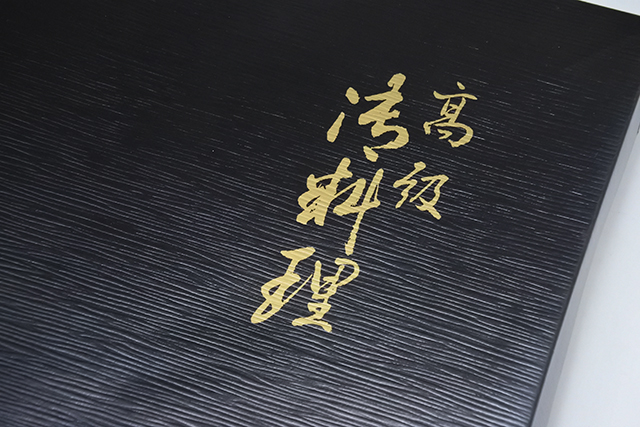 高級
御料理